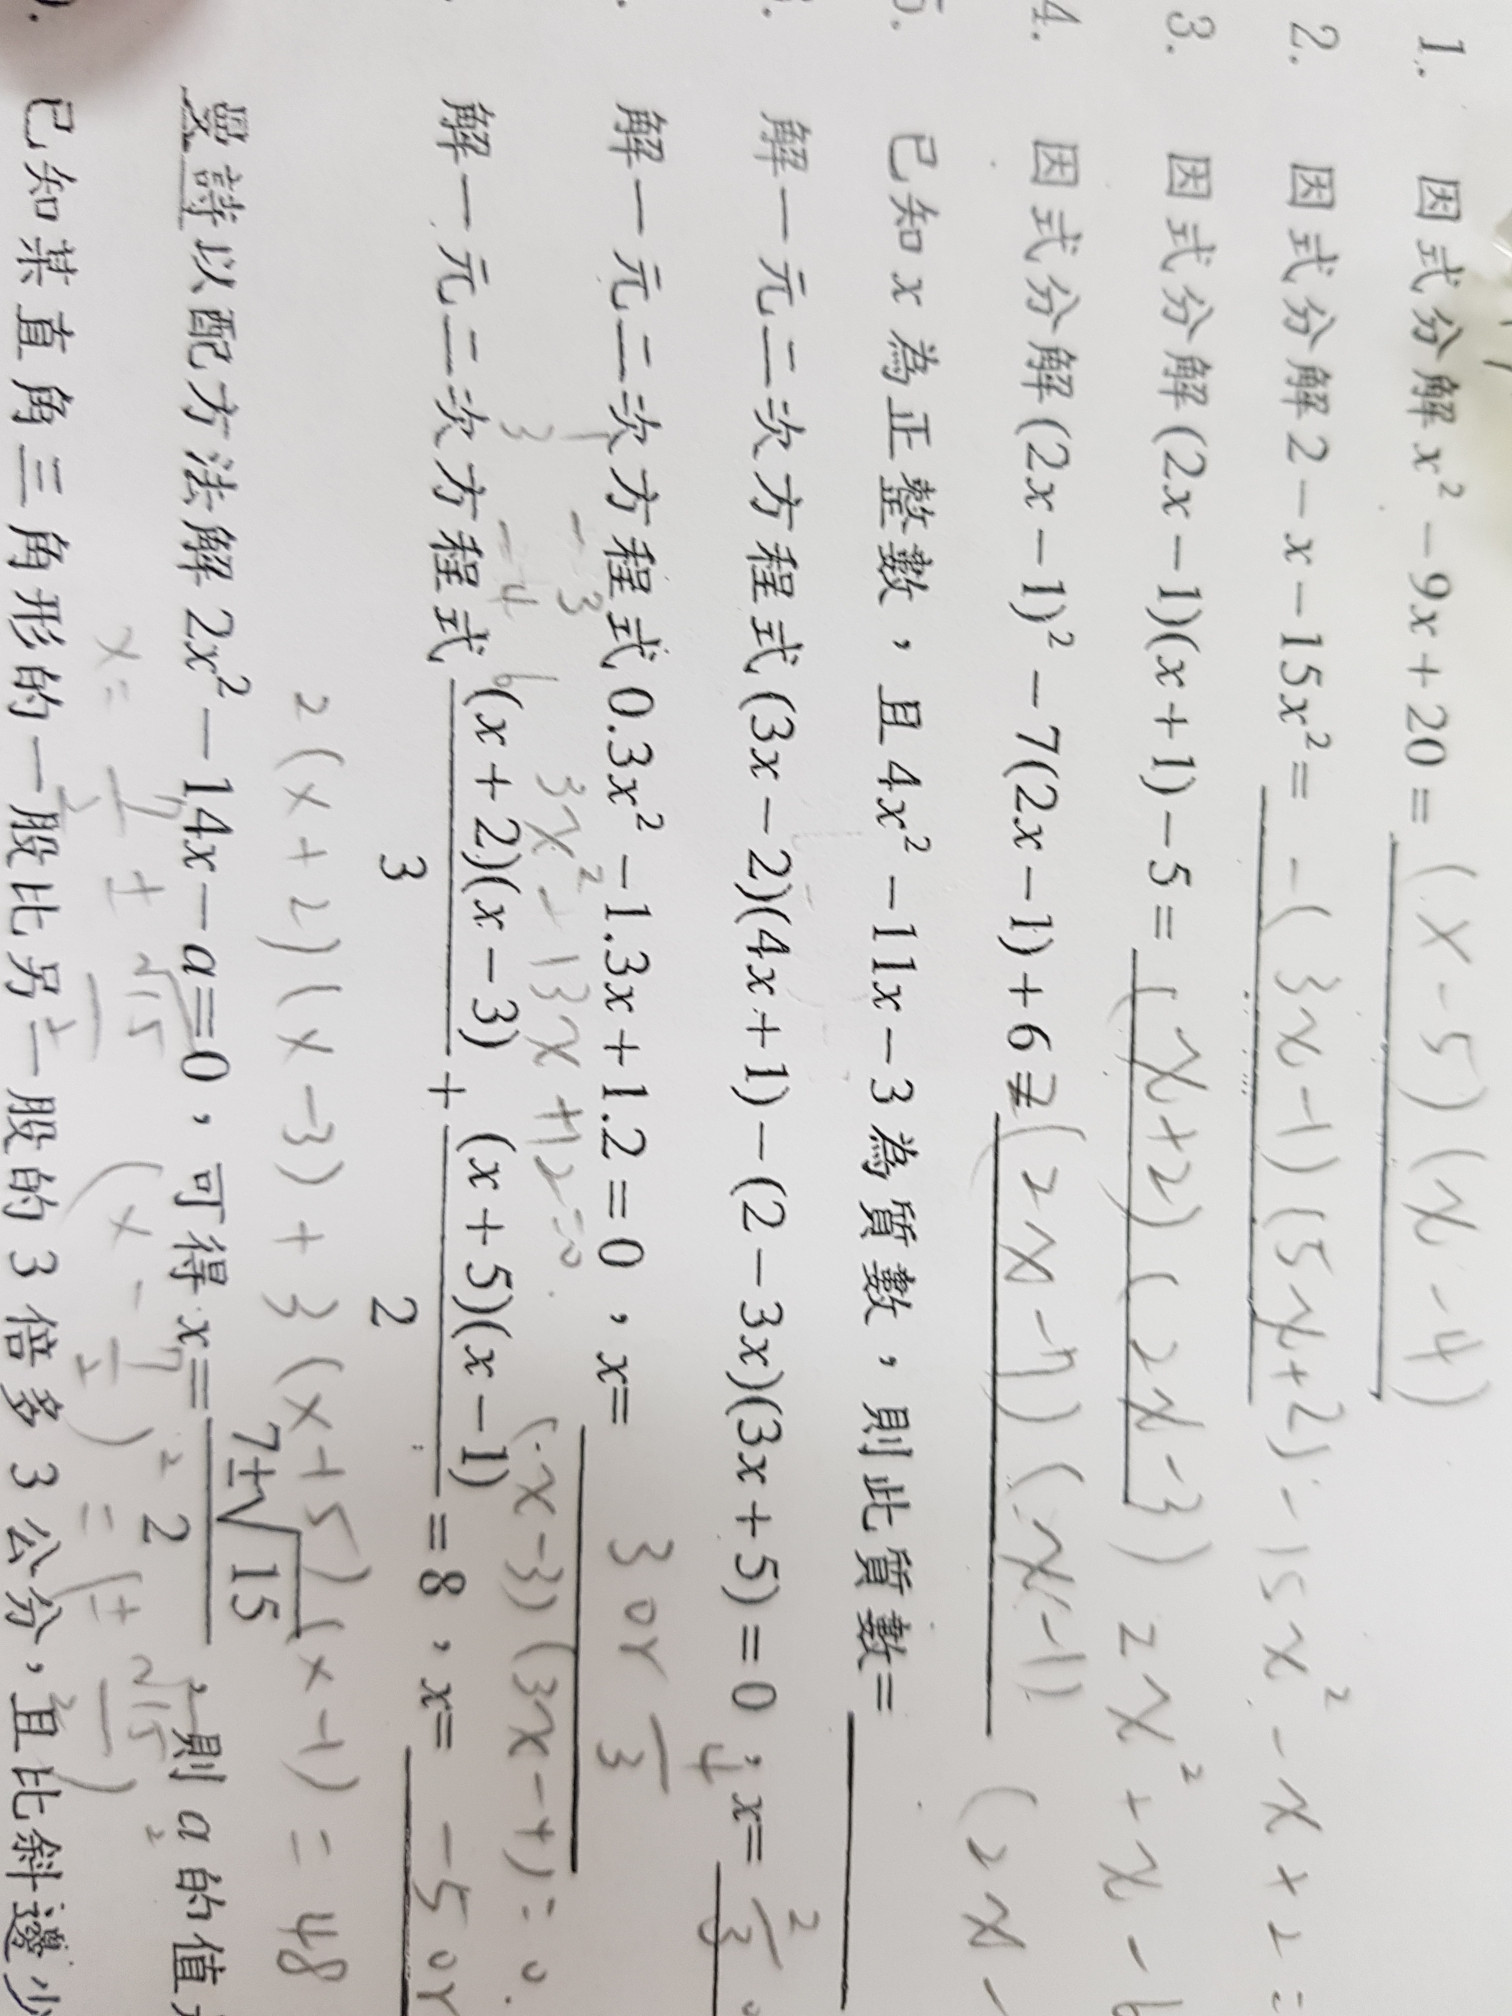 1. 因式分解 x² − 9x + 20 = (x-5)(x-4)
2. 因式分解 2 − x − 15x² = -(3x-1)(5x+2) -15x²-x+2=
3. 因式分解 (2x − 1)(x + 1) − 5 = (x+2)(2x-3) 2x²+x-6
4. 因式分解 (2x − 1)² − 7(2x − 1) + 6 = 2(2x-7)(x-1) (2x-
5. 已知 x 為正整數，且 4x² − 11x − 3 為質數，則此質數=
解一元二次方程式 (3x − 2)(4x + 1) − (2 − 3x)(3x + 5) = 0，x= 2/3
解一元二次方程式 0.3x² − 1.3x + 1.2 = 0，x= 3 or 4/3
1 -3
3 -4
3x²-13x+12=0. (x-3)(3x-4)=0.
解一元二次方程式 (x + 2)(x − 3)/3 + (x + 5)(x − 1)/2 = 8，x= -5 or
2(x+2)(x-3)+3(x+5)(x-1)=48
曼詩以配方法解 2x² − 14x − a = 0，可得 x= (7±√15)/2，則 a 的值
x= 7/2 ± √15/2 (x-7/2)² = (± √15/2)²
已知某直角三角形的一股比另一股的 3 倍多 3 公分，且比斜邊少